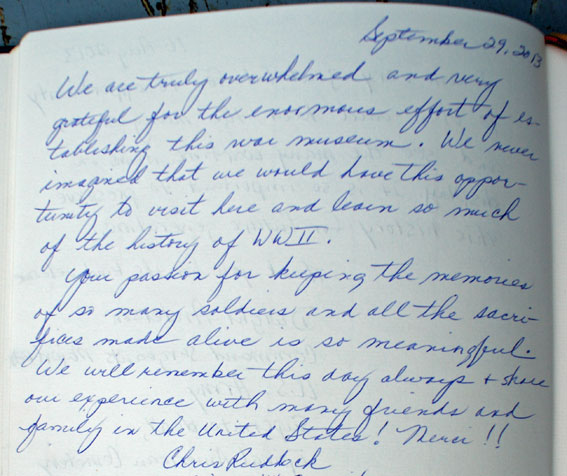 September 29, 2013
We are truly overwhelmed and very
grateful for the enormous effort of es-
tablishing this war museum. We never
imagined that we would have this oppor-
tunity to visit here and learn so much
of the history of WW II.
Your passion for keeping the memories
of so many soldiers and all the sacri-
fices made alive is so meaningful.
We will remember this day always + share
our experience with many friends and
family in the United States! Merci!!
Chris